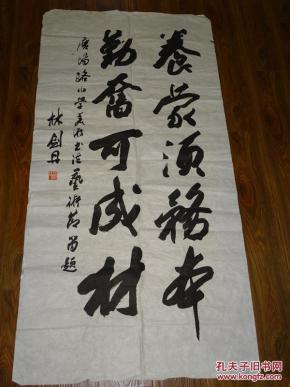 養蒙須務本
勤奮可成材
廣場路小學美術書法藝術節留題
林劍丹
孔夫子旧书网